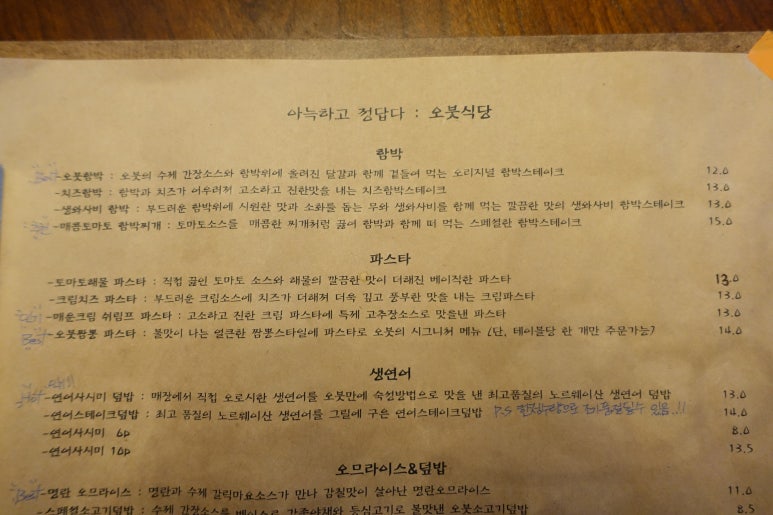 아늑하고 정답다 : 오붓식당
함박
-오붓함박 : 오붓의 수제 간장소스와 함박위에 올려진 달걀과 함께 곁들여 먹는 오리지널 함박스테이크 12.0
-치즈함박 : 함박과 치즈가 어우러져 고소하고 진한맛을 내는 치즈함박스테이크 13.0
-생와사비 함박 : 부드러운 함박위에 시원한 맛과 소화를 돕는 무와 생와사비를 함께 먹는 깔끔한 맛의 생와사비 함박스테이크 13.0
-매콤토마토 함박찌개 : 토마토소스를 매콤한 찌개처럼 끓여 함박과 함께 떠 먹는 스페셜한 함박스테이크 15.0
파스타
-토마토해물 파스타 : 직접 끓인 토마토 소스와 해물의 깔끔한 맛이 더해진 베이직한 파스타 13.0
-크림치즈 파스타 : 부드러운 크림소스에 치즈가 더해져 더욱 깊고 풍부한 맛을 내는 크림파스타 13.0
-매운크림 쉬림프 파스타 : 고소하고 진한 크림 파스타에 특제 고추장소스로 맛을낸 파스타 13.0
Best -오붓짬뽕 파스타 : 불맛이 나는 얼큰한 짬뽕스타일에 파스타로 오붓의 시그니처 메뉴 (단, 테이블당 한 개만 주문가능) 14.0
생연어
-연어사시미 덮밥 : 매장에서 직접 오로시한 생연어를 오붓만에 숙성방법으로 맛을 낸 최고품질의 노르웨이산 생연어 덮밥 13.0
-연어스테이크덮밥 : 최고 품질의 노르웨이산 생연어를 그릴에 구운 연어스테이크덮밥 P.S 한정수량으로 조기품절될수 있음..!! 14.0
-연어사시미 6p 8.0
-연어사시미 10p 13.5
오므라이스&덮밥
Best -명란 오므라이스 : 명란과 수제 갈릭마요소스가 만나 감칠맛이 살아난 명란오므라이스 11.0
-스페셜소고기덮밥 : 수제 간장소스를 베이스로 각종야채와 등심고기로 불맛낸 오붓소고기덮밥 8.5